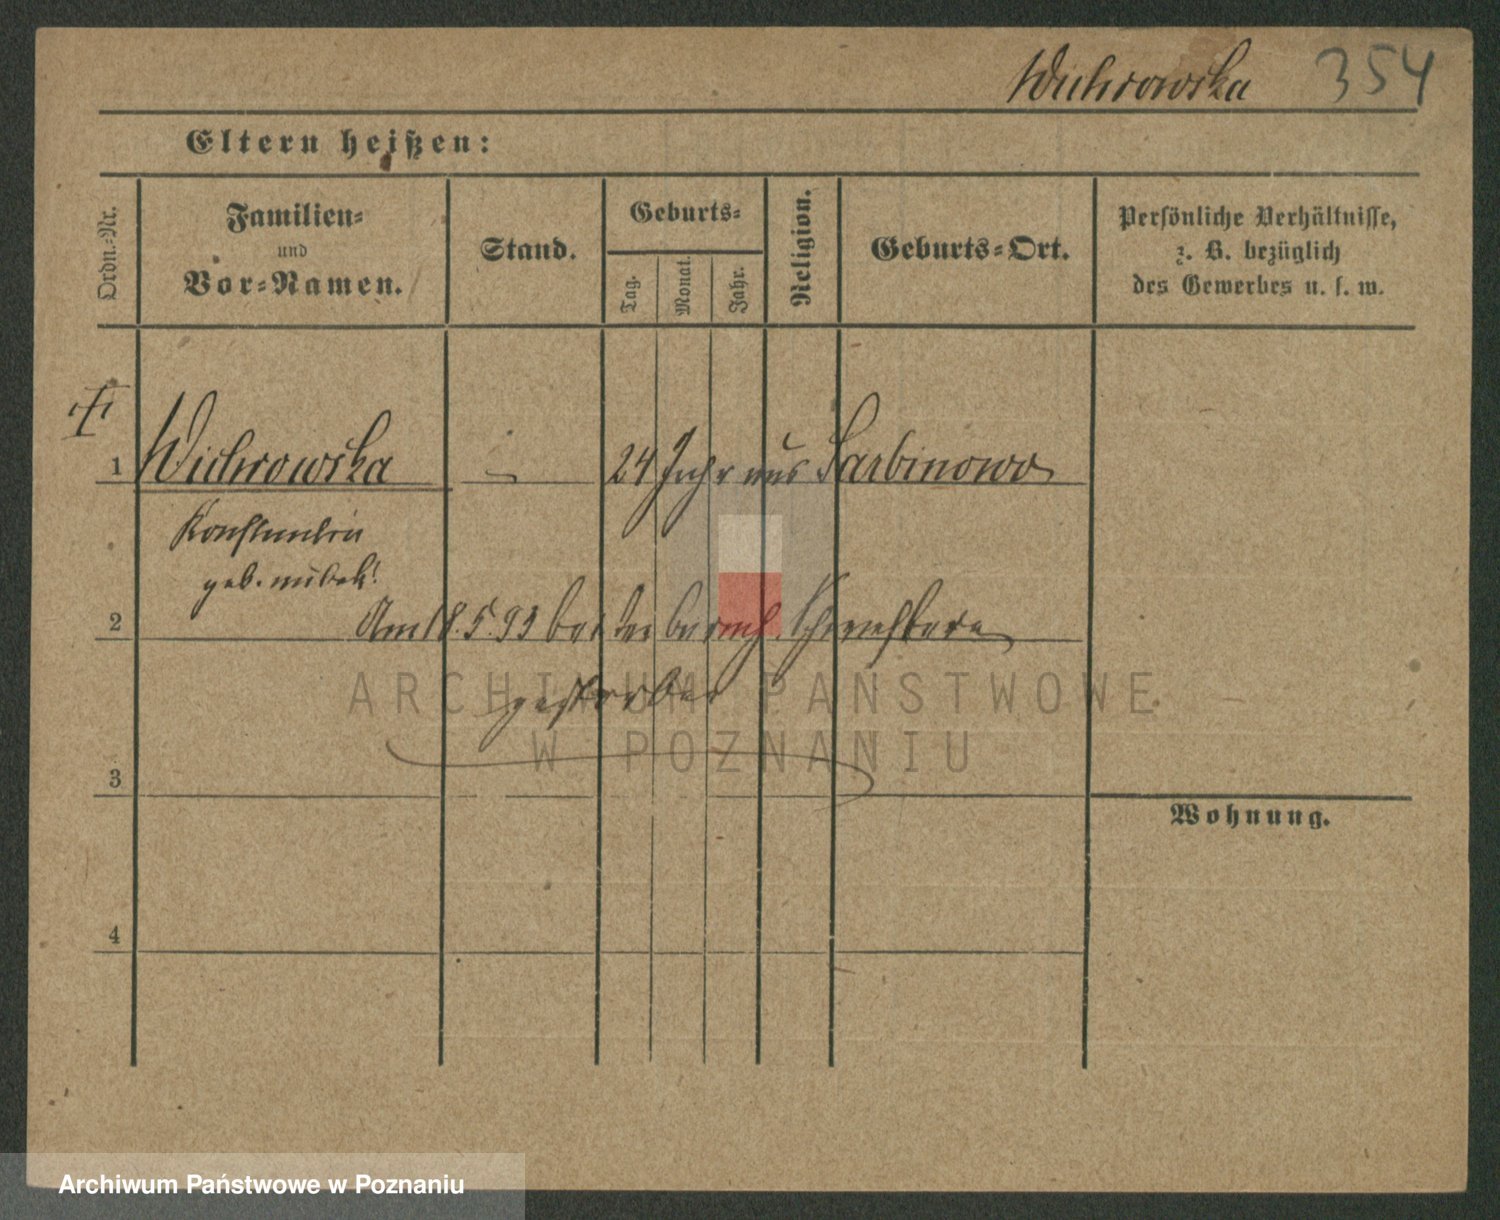 Wichrowska 354
Eltern heißen:
Ordn.-Nr.
Familien-
und
Vor-Namen.
Stand.
Geburts-
Tag.
Monat.
Jahr.
Religion.
Geburts-Ort.
Persönliche Verhältnisse,
z. B. bezüglich
des Gewerbes u. s. w.
1 Wichrowska - 24 Jahr aus Sarbinowo
Konstantin
geb. unbek!
2 Am 18.5.93 bei der
gestorben
3
Wohnung.
4
ARCHIWUM PAŃSTWOWE
W POZNANIU
Archiwum Państwowe w Poznaniu